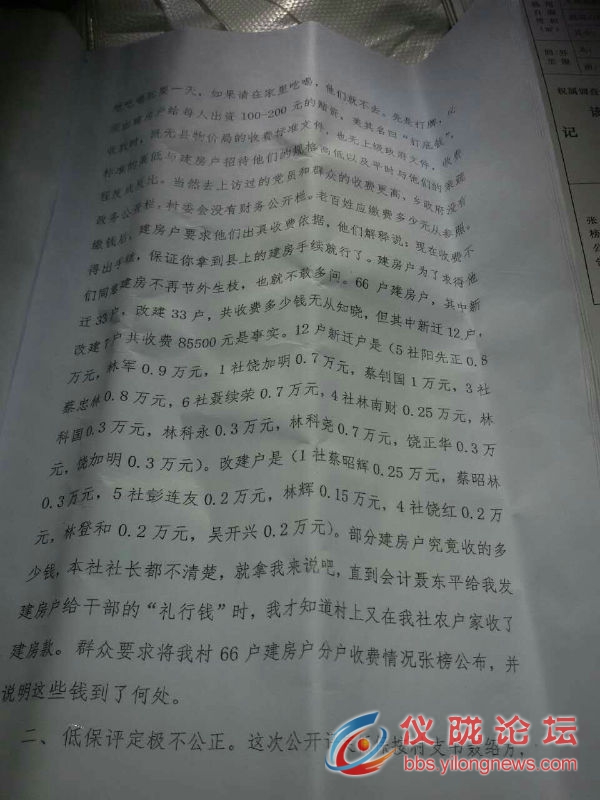 吃吃喝喝耍一天，如果请在家里吃喝，他们就不去。先是打牌，
须由建房户给每人出资100-200元的赌资，美其名曰“打底款”，
收钱时，既无县物价局的收费标准文件，也无上级政府文件，收费
标准的高低与建房户招待他们的规格高低以及平时与他们的亲疏
程度成反比。当然去上访过的党员和群众的收费更高、乡政府没有
政务公开栏，村委会没有财务公开栏。老百姓应缴费多少无从参照。
缴钱后，建房户要求他们出具收费依据，他们解释说：现在收费不
得出手续，保证你拿到县上的建房手续就行了。建房户为了求得他
们同意建房不再节外生枝，也就不敢多问。66户建房户，其中新
迁33户，改建33户，共收费多少钱无从知晓，但其中新迁12户，
改建7户共收费85500元是事实。12户新迁户是（5社阳先正0.8
万元，林军0.9万元，1社饶加明0.7万元，蔡钊国1万元，3社
蔡忠林0.8万元，6社聂续荣0.7万元，4社林南财0.25万元，林
科国0.3万元，林科永0.3万元，林科尧0.7万元，饶正华0.3万
元，饶加明0.3万元）。改建户是（1社蔡昭辉0.25万元，蔡昭林
0.3万元，5社彭连友0.2万元，林辉0.15万元，4社饶红0.2万
元，林登和0.2万元，吴开兴0.2万元）。部分建房户究竟收的多
少钱，本社社长都不清楚，就拿我来说吧，直到会计聂东平给我发
建房户给干部的“礼行钱”时，我才知道村上又在我社农户家收了
建房款。群众要求将我村66户建房户分户收费情况张榜公布，并
说明这些钱到了何处。
二、低保评定极不公正。这次公开评
权属调查
记
仪陇论坛
bbs.yilongnews.com